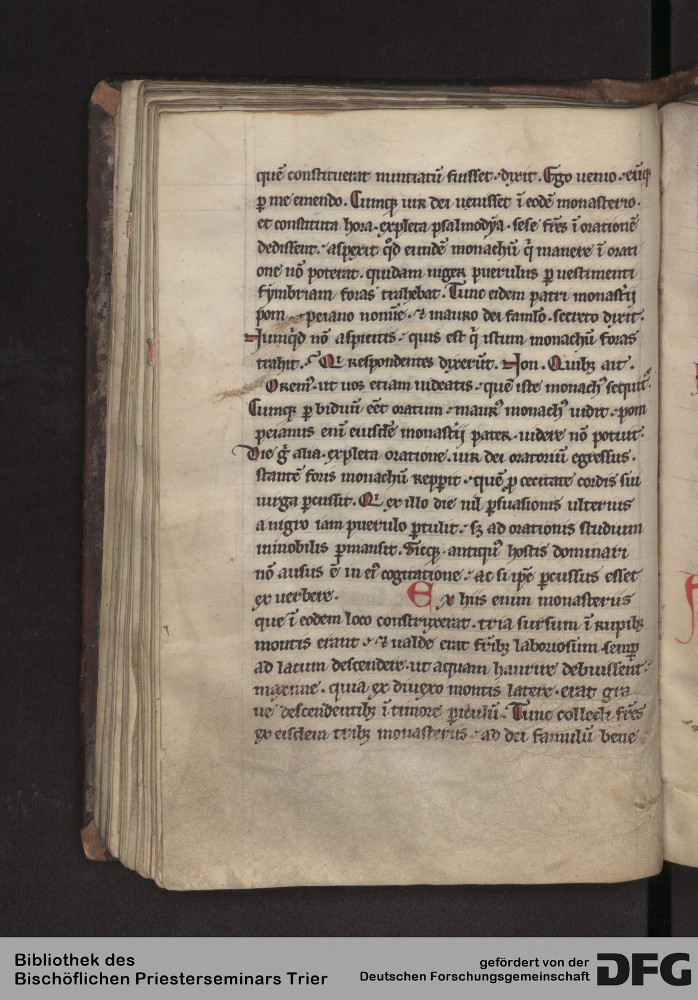 quē constituerat nuntiatū fuisset. dixit. Ego uenio. eūq;
ꝑ me emendo. Cumq; uir dei uenisset ī eodē monasterio.
et constituta hora. expleta psalmodẏa. sese fr̄es ī orationē
dedissent. aspexit qͦd eundē monachū q̄ manere ī orati
one nō poterat. quidam niger puerulus ꝑ uestimenti
fẏmbriam foras trahebat. Tunc eidem patri monastẏi
pom peiano nomīe. ⁊ mauro dei famlo. secreto dixit.
Numq̄d nō aspicitis. quis est q̄ istum monachū foras
trahit. Qi respondentes dixerūt. Non. Quibꝫ ait.
Oremꝰ. ut uos etiam uideatis. quē iste monachꝰ sequit᷑.
Cumq; ꝑ biduū eēt oratum. maurꝰ monachꝰ uidit. pom
peianus enī eiusdē monastẏi pater. uidere nō potuit.
Die g̊ alia. expleta oratione. uir dei oratoriū egressus.
stantē foris monachū repꝑit. quē ꝓ cecitate cordis sui
uirga ꝑcussit. Qi ex illo die nil ꝑsuasionis ulterius
a nigro iam puerulo ꝑtulit. sꝫ ad orationis studium
inmobilis ꝑmansit. Sicq;. antiquꝰ hostis dominari
nō ausus ē in eiꝰ cogitatione. ac si ipē ꝑcussus esset
ex uerbere. Ex his enim monasteriis
que ī eodem loco construxerat. tria sursum ī rupibꝫ
montis erant. ⁊ ualde erat fr̄ibꝫ laboriosum. semꝑ
ad lacum descendere. ut aquam haurire debuissent.
maxime. quia ex diuexo montis latere. erat gra
ue descendentibꝫ ī timore ꝑiculū. Tunc collecti fr̄es
ex eisdem tribꝫ monasteriis. ad dei famulū bene
Bibliothek des
Bischöflichen Priesterseminars Trier
gefördert von der
Deutschen Forschungsgemeinschaft
DFG